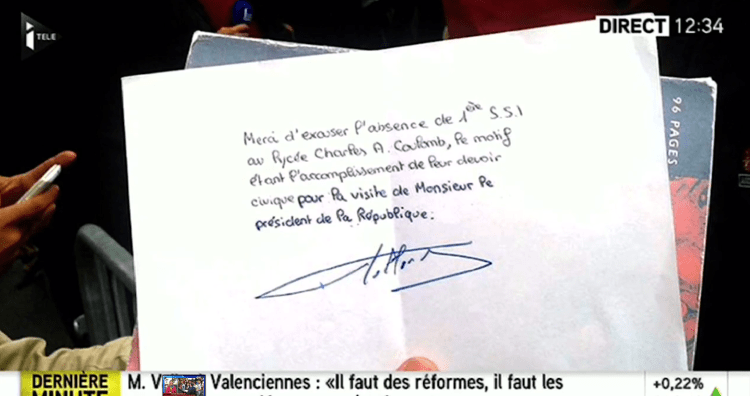 iTELE
DIRECT 12:34
96 PAGES
Merci d'excuser l'absence de 1ère S.S.I
au lycée Charles A. Coulomb, le motif
étant l'accomplissement de leur devoir
civique pour la visite de Monsieur le
président de la République.
DERNIÈRE
MINUTE
M. V
Valenciennes : «Il faut des réformes, il faut les
+0,22%